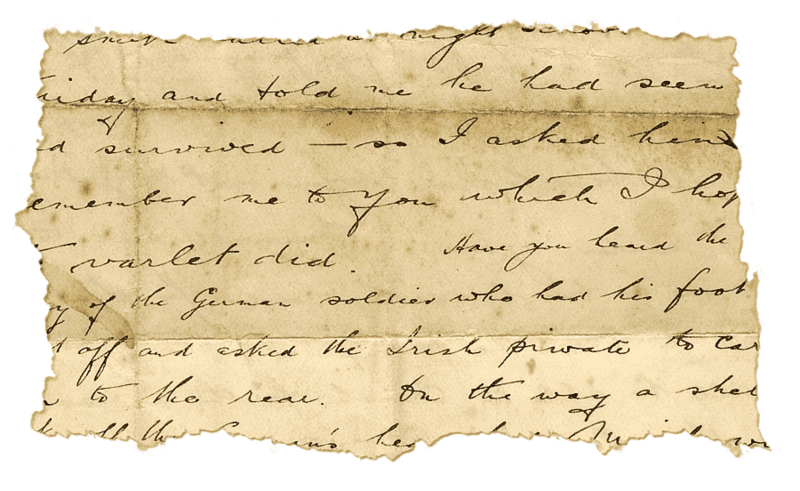 night
riday and told me he had seen
d survived — so I asked him
emember me to you which I hop
t varlet did. Have you heard the
y of the German soldier who had his foot
t off and asked the Irish private to car
to the rear. On the way a shel
off the German's hea